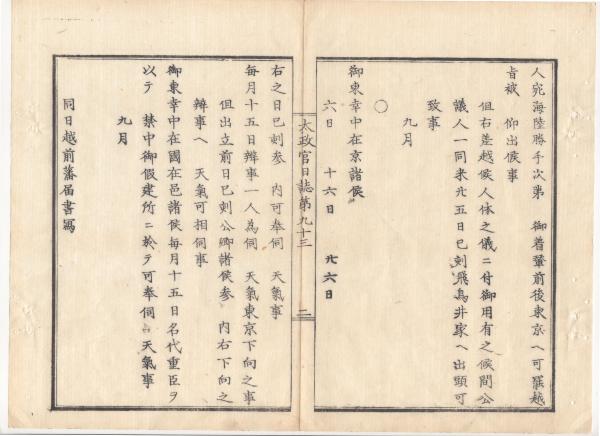 人宛海陸勝手次第　御着輦前後東京ヘ可罷越
旨被　仰出候事
但右差越候人体之儀ニ付御用有之候間公
議人一同来廿五日巳刻飛鳥井家ヘ出頭可
致事
九月
〇
御東幸中在京諸侯
六日　十六日　廿六日
太政官日誌第九十三
二
右之日巳刻参　内可奉伺　天氣事
毎月十五日辨事一人為伺　天氣東京下向之事
但出立前日巳刻公卿諸侯参　内右下向之
辨事ヘ　天氣可相伺事
御東幸中在國在邑諸侯毎月十五日名代重臣ヲ
以テ　禁中御假建所ニ於テ可奉伺　天氣事
九月
同日越前藩届書寫